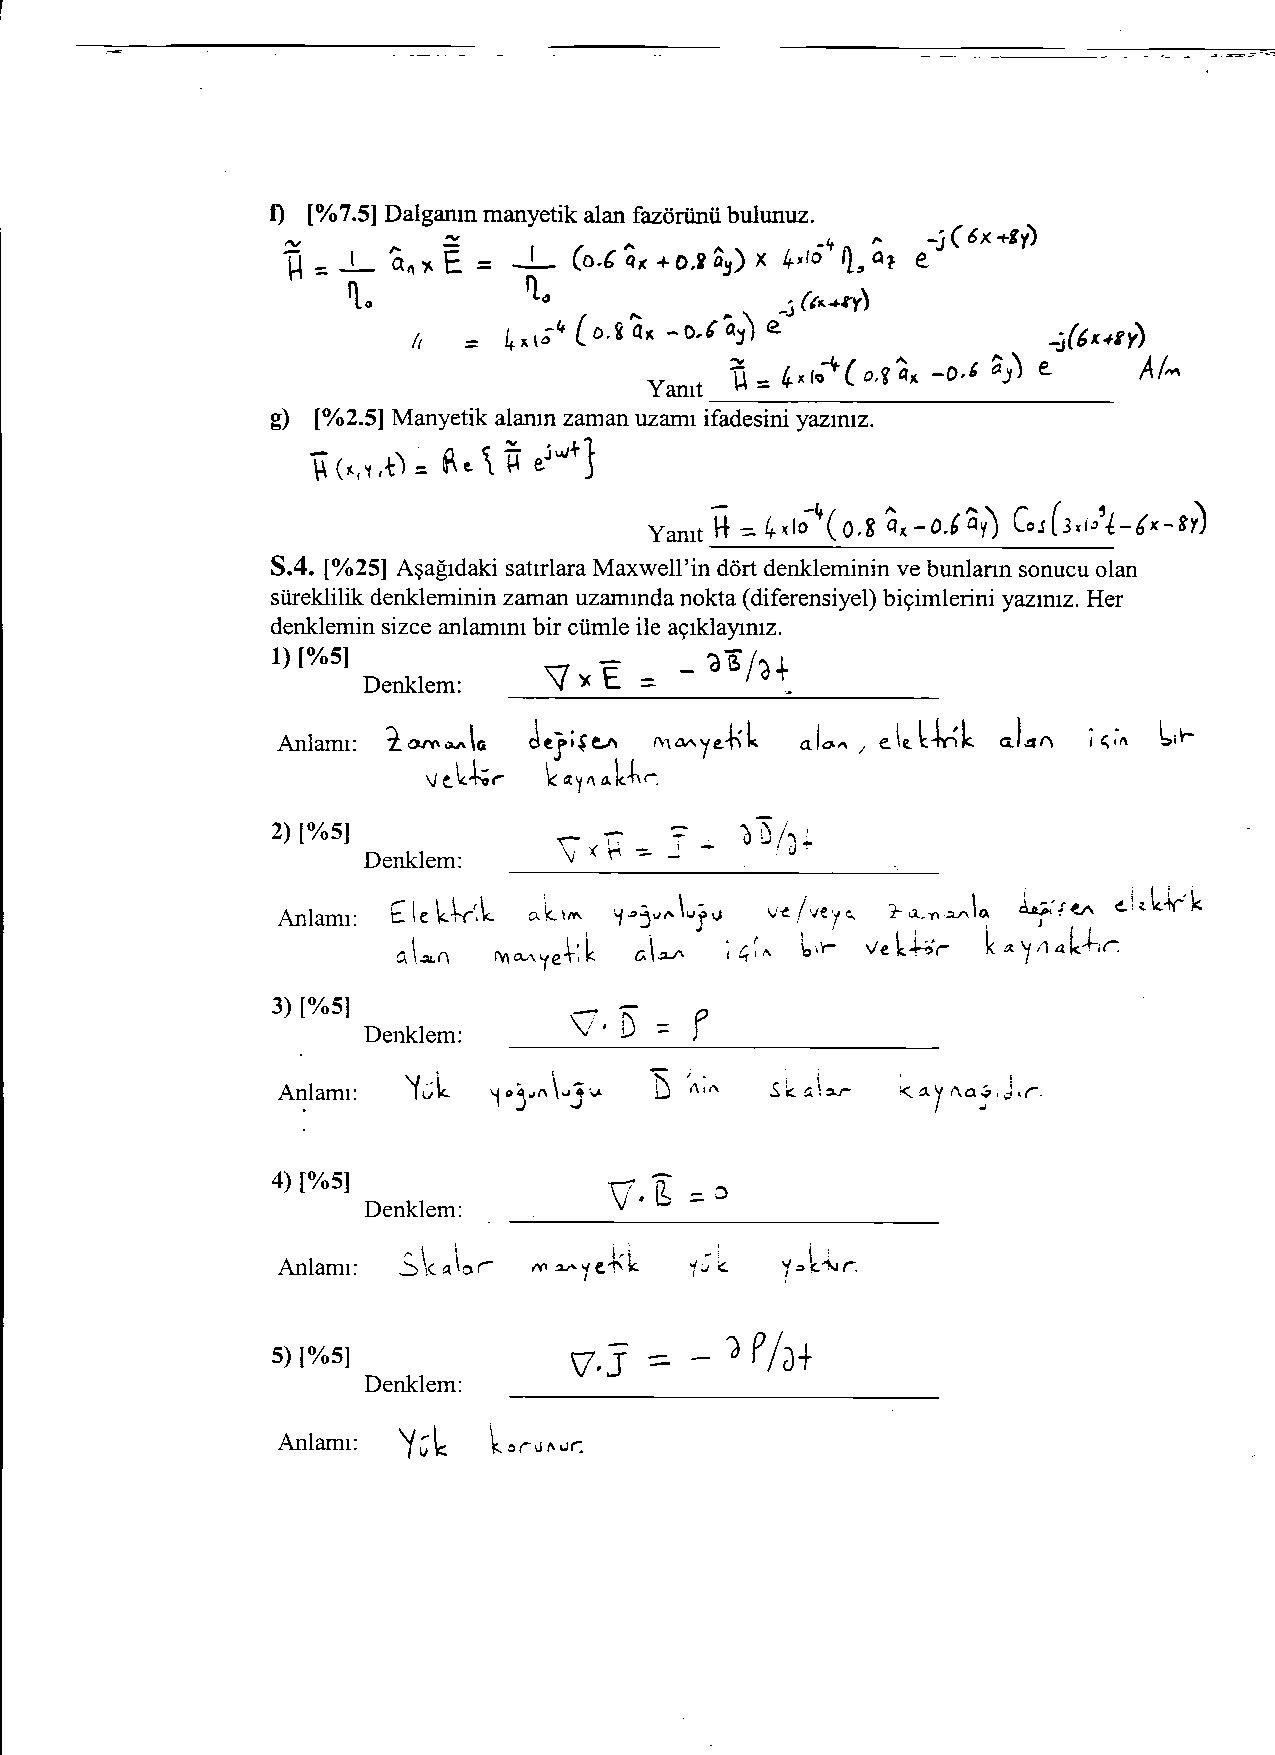 f) [%7.5] Dalganın manyetik alan fazörünü bulunuz.
H̃ = 1/η₀ âₙ × Ẽ = 1/η₀ (0.6 âx + 0.8 ây) × 4×10⁻⁴ η₀ âz e^-j(6x+8y)
〃 = 4×10⁻⁴ (0.8 âx - 0.6 ây) e^-j(6x+8y)
Yanıt H̃ = 4×10⁻⁴ (0.8 âx - 0.6 ây) e^-j(6x+8y) A/m
g) [%2.5] Manyetik alanın zaman uzamı ifadesini yazınız.
H̄(x,y,t) = Re{ H̃ e^jωt }
Yanıt H̄ = 4×10⁻⁴ (0.8 âx - 0.6 ây) Cos(3×10⁹t - 6x - 8y)
S.4. [%25] Aşağıdaki satırlara Maxwell'in dört denkleminin ve bunların sonucu olan
süreklilik denkleminin zaman uzamında nokta (diferensiyel) biçimlerini yazınız. Her
denklemin sizce anlamını bir cümle ile açıklayınız.
1) [%5]
Denklem: ∇ × Ē = - ∂B̄/∂t
Anlamı: Zamanla değişen manyetik alan, elektrik alan için bir
vektör kaynaktır.
2) [%5]
Denklem: ∇ × H̄ = J̄ - ∂D̄/∂t
Anlamı: Elektrik akım yoğunluğu ve/veya zamanla değişen elektrik
alan manyetik alan için bir vektör kaynaktır.
3) [%5]
Denklem: ∇ · D̄ = ρ
Anlamı: Yük yoğunluğu D̄ 'nin skalar kaynağıdır.
4) [%5]
Denklem: ∇ · B̄ = 0
Anlamı: Skalar manyetik yük yoktur.
5) [%5]
Denklem: ∇ · J̄ = - ∂ρ/∂t
Anlamı: Yük korunur.